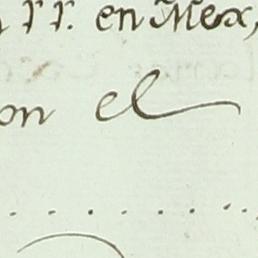 rr. en Mex,
on el